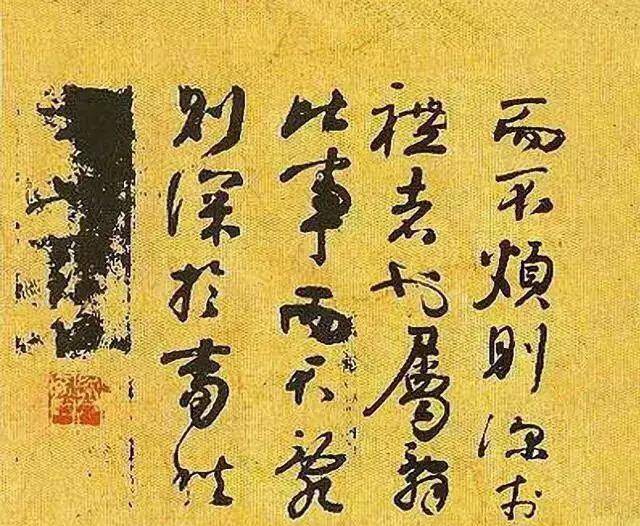 而不煩則深於
禮者也屬辭
比事而不亂
則深於春秋